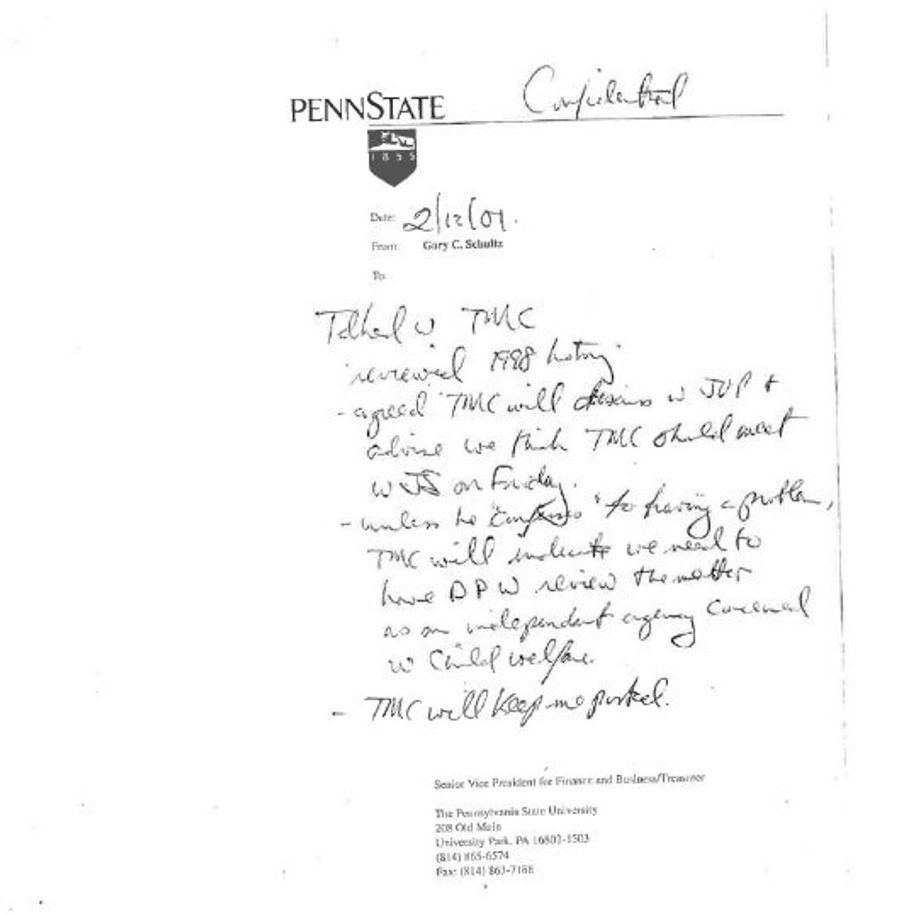 Confidential
PENNSTATE
1855
Date: 2/12/01.
From: Gary C. Schultz
To:
Talked w TMC
reviewed 1998 history
- agreed TMC will discuss w JVP &
advise we think TMC should meet
w JS on Friday.
- unless he "confesses" to having a problem,
TMC will indicate we need to
have DPW review the matter
as an independent agency concerned
w child welfare.
- TMC will keep me posted.
Senior Vice President for Finance and Business/Treasurer
The Pennsylvania State University
208 Old Main
University Park, PA 16802-1503
(814) 865-6574
Fax: (814) 863-7188